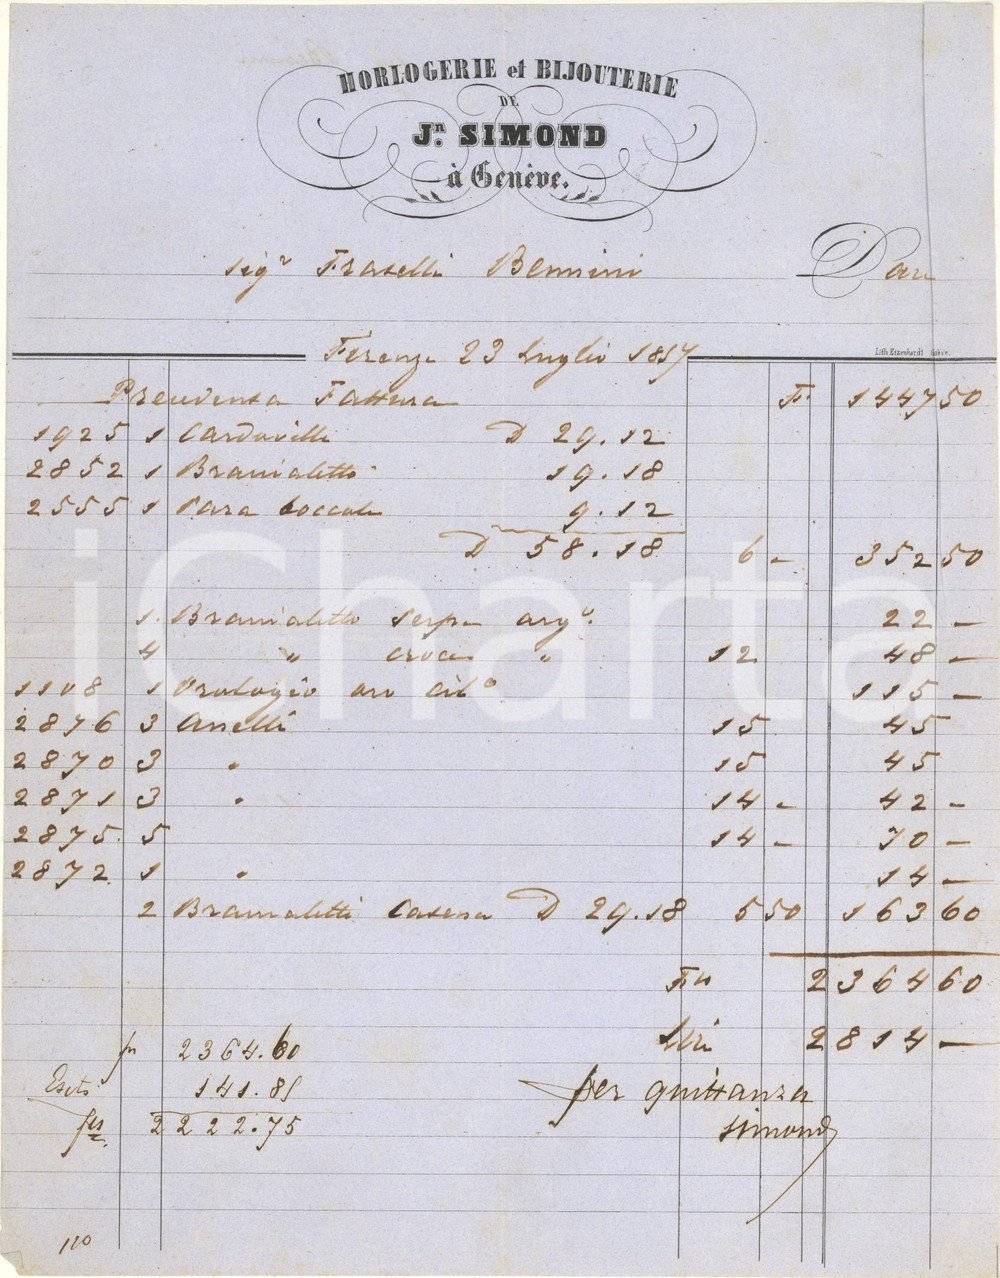 HORLOGERIE et BIJOUTERIE
DE
Jn. SIMOND
à Genève.
Sigr Fratelli Bennini Dare
Lith. Etzenhardt Genève.
Firenze 23 Luglio 1857
Precedenta Fattura Fr 1447 50
1925 1 Cardovilli D 29.12
2852 1 Bramialetto 19.18
2555 1 Para boccole 9.12
D 58.18 6 - 352 50
1. Bramialetto Serpe argto. 22 -
4 " croce " 12 48 -
1108 1 Orologio oro cilo 115 -
2876 3 Anelli 15 45
2870 3 " 15 45
2871 3 " 14 - 42 -
2875. 5 14 - 70 -
2872. 1 " 14 -
2 Bramialetti Catena D 29.18 5 50 163 60
Fn 2364 60
Lire 2814 -
fn 2364.60
141.85
2222.75
per quittanza
Simond
110
iCharta